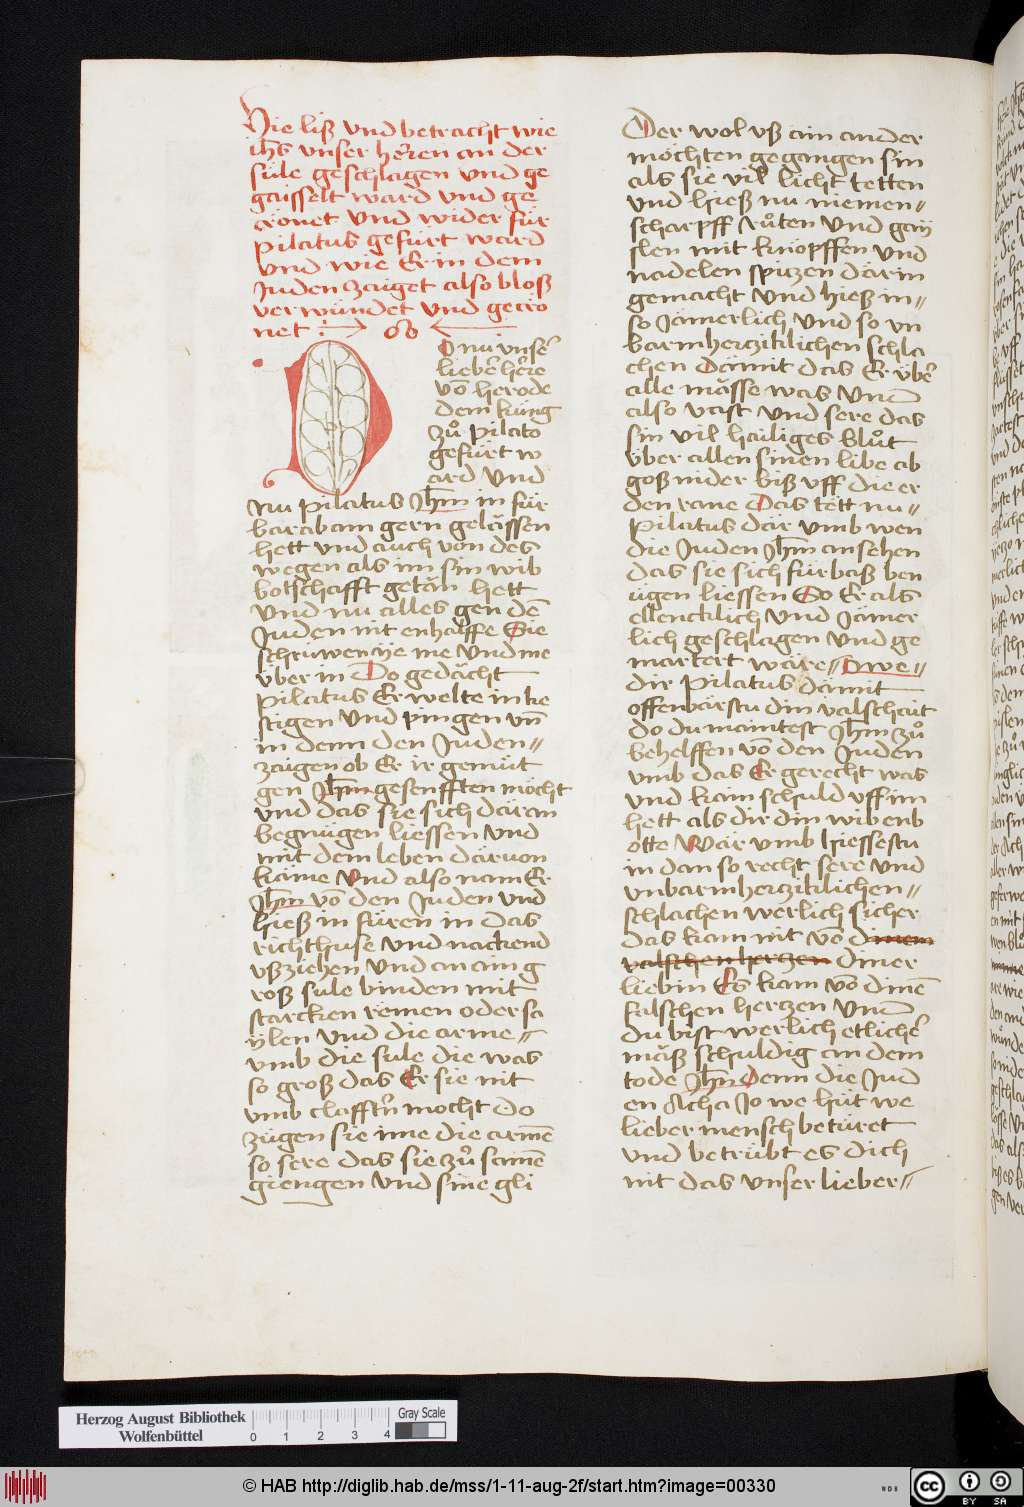 Hie liß vnd betracht wie
ihs vnser heren an der
süle geschlagen vnd ge
gaisselt ward vnd ge
crönet vnd wider für
pilatus gefürt ward
vnd wie Er in dem
Juden zaiget also bloß
verwündet vnd gecrö
net
O nu vnser̄
lieber̄ her̄e
vō herode
dem küng
zů pilato
gefürt w
ard vnd
Nu pilatus Jhm̄ in für
barabam gern gelässen
hett vnd auch von des
wegen als im sin wib
botschafft getän hett
vnd nu alles gen dē
Juden nit enhalffe Sie
schruwen ye me vnd me
über in Do gedächt
pilatus Er welte in ke
stigen vnd pingen vn̄
in denn den Juden
zaigen ob Er ir gemüt
gen Jhm̄ gesenfften möcht
vnd das sie sich däran
begnügen liessen vnd
mit dem leben däruon
käme Vnd also nam Er
Jhm̄ vō den Juden vnd
hieß in füren in das
richthuse vnd nackend
vßziehen vnd an ain g
roß sule binden mit
starcken remen oder sa
ylen vnd die arme
vmb die sule die was
so groß das Er sie nit
vmb clafftn̄ mocht Do
zügen sie ime die armē
so sere das sie zů samē
giengen vnd sine gli
Der wol vß ain ander
möchten gegangen sin
als sie vil licht tetten
vnd hieß nu niemen
scharpff růten vnd gay
slen mit knöpffen vnd
nadelen spitzen därin
gemacht vnd hieß in
so Jämerlich vnd so vn
barmhertziklichen schla
chen Dämit das Er über̄
alle mässe was Vnd
also vast vnd sere das
sin vil hailiges blůt
über allen sinen libe ab
goß nider biß vff die er
den rane Das tett nu
pilatus där vmb wen
die Juden Jhm̄ ansehen
das sie sich fürbaß ben
ügen liessen So Er als
ellencklich vnd Jämer
lich geschlagen vnd ge
martert wäre Owe
dir pilatus dämit
offenbärstu din valschait
do du maintest Jhm̄ zů
behelffen vō den Juden
vmb das Er gerecht was
vnd kain schuld vff im
hett als dir din wib enb
otte Wär vmb hiessestu
in dan so recht sere vnd
vnbarmhertziklichen
schlachen werlich sicher
das kam nit vō dinem
valschen hertzen diner
liebin Es kam vō dinē
falschen hertzen Vnd
du bist werlich etlicher̄
mäß schuldig an dem
tode Jhm̄ Denn die Jud
en Acha Jo we hüt we
lieber mensch betüret
vnd betrübt es dich
nit das vnser lieber
Herzog August Bibliothek
Wolfenbüttel
0 1 2 3 4
Gray Scale
© HAB http://diglib.hab.de/mss/1-11-aug-2f/start.htm?image=00330
cc BY SA